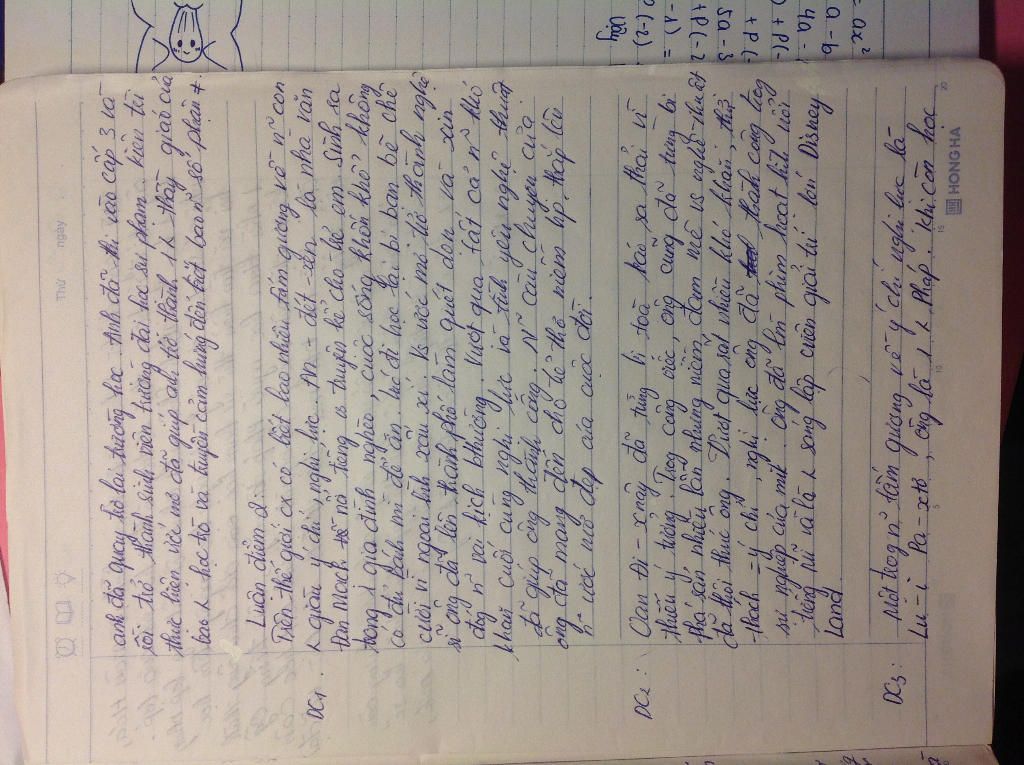 Thứ ngày
anh đã quay trở lại trường học. Anh đã thi vào cấp 3 và
rồi trở thành sinh viên trường đại học sư phạm. kiên trì
thực hiện ước mơ đã giúp anh trở thành 1 thầy giáo của
bao học trò và truyền cảm hứng đến biết bao n~ số phận ≠.
Luận điểm 2:
Trên thế giới cx có biết bao nhiêu tấm gương về n~ con
giàu ý chí, nghị lực. An - đéc-xen là nhà văn
DC1:
Đan Mạch nổi tiếng vs truyện kể cho bé em. Sinh ra
trong 1 gia đình nghèo, cuộc sống khốn khổ không
có đủ bánh mì để ăn. lúc đi học lại bị bạn bè chê
cười vì ngoại hình xấu xí. Vs ước mơ trở thành nghệ
sĩ ông đã lên thành phố làm quét dọn và xin
đóng n~ vai kịch bthường. Vượt qua tất cả n~ khó
khăn cuối cùng nghị lực và tình yêu nghệ thuật
đã giúp ông thành công. N~ câu chuyện của
ông đã mang đến cho trẻ thơ niềm tin, thắp lên
n~ ước mơ đẹp của cuộc đời.
DC2:
Oan Đi-xnây đã từng bị toà báo sa thải vì
thiếu ý tưởng. Trog công việc, ông cũng đã từng bị
phá sản nhiều lần nhưng niềm đam mê vs nghệ thuật
đã thôi thúc ông. Vượt qua rất nhiều khó khăn, thử
thách = ý chí, nghị lực ông đã thành công trog
sự nghiệp của mình. ông đã làm phim hoạt hình nổi
tiếng và là sáng lập viên giải trí lớn Disney
Land.
DC3:
Một trog n~ tấm gương về ý chí nghị lực là
Lu-i Pa-xtơ, ông là 1 Pháp. khi còn học
HONG HA